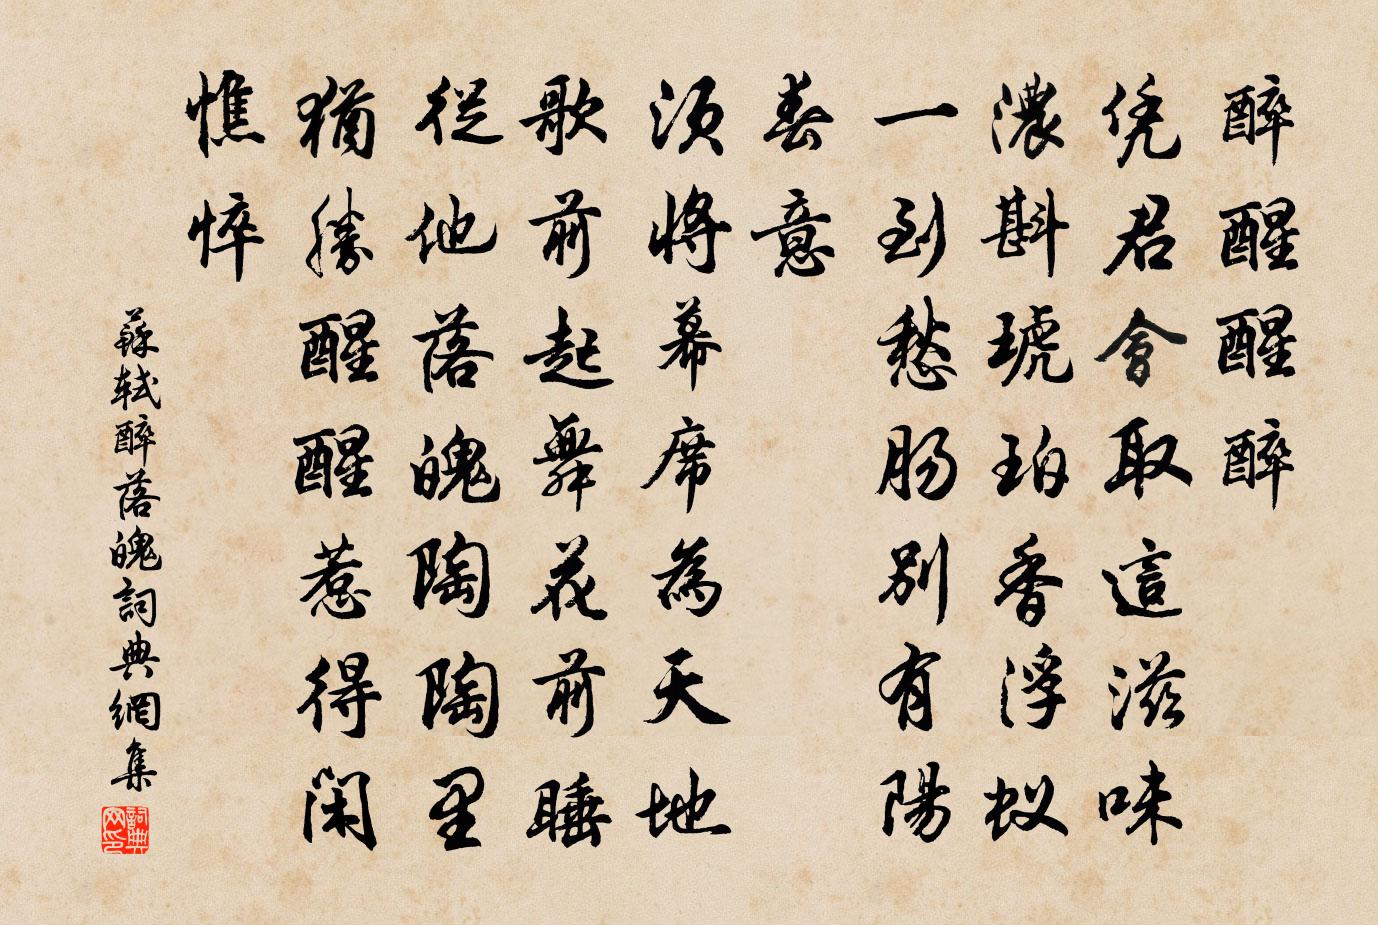 醉醒醒醉
凭君會取這滋味
濃斟琥珀香浮蚁
一到愁肠别有陽
春意
须將幕席為天地
歌前起舞花前睡
從他落魄陶陶里
猶勝醒醒惹得闲
憔悴
蘇轼醉落魄詞典網集
詞典网印